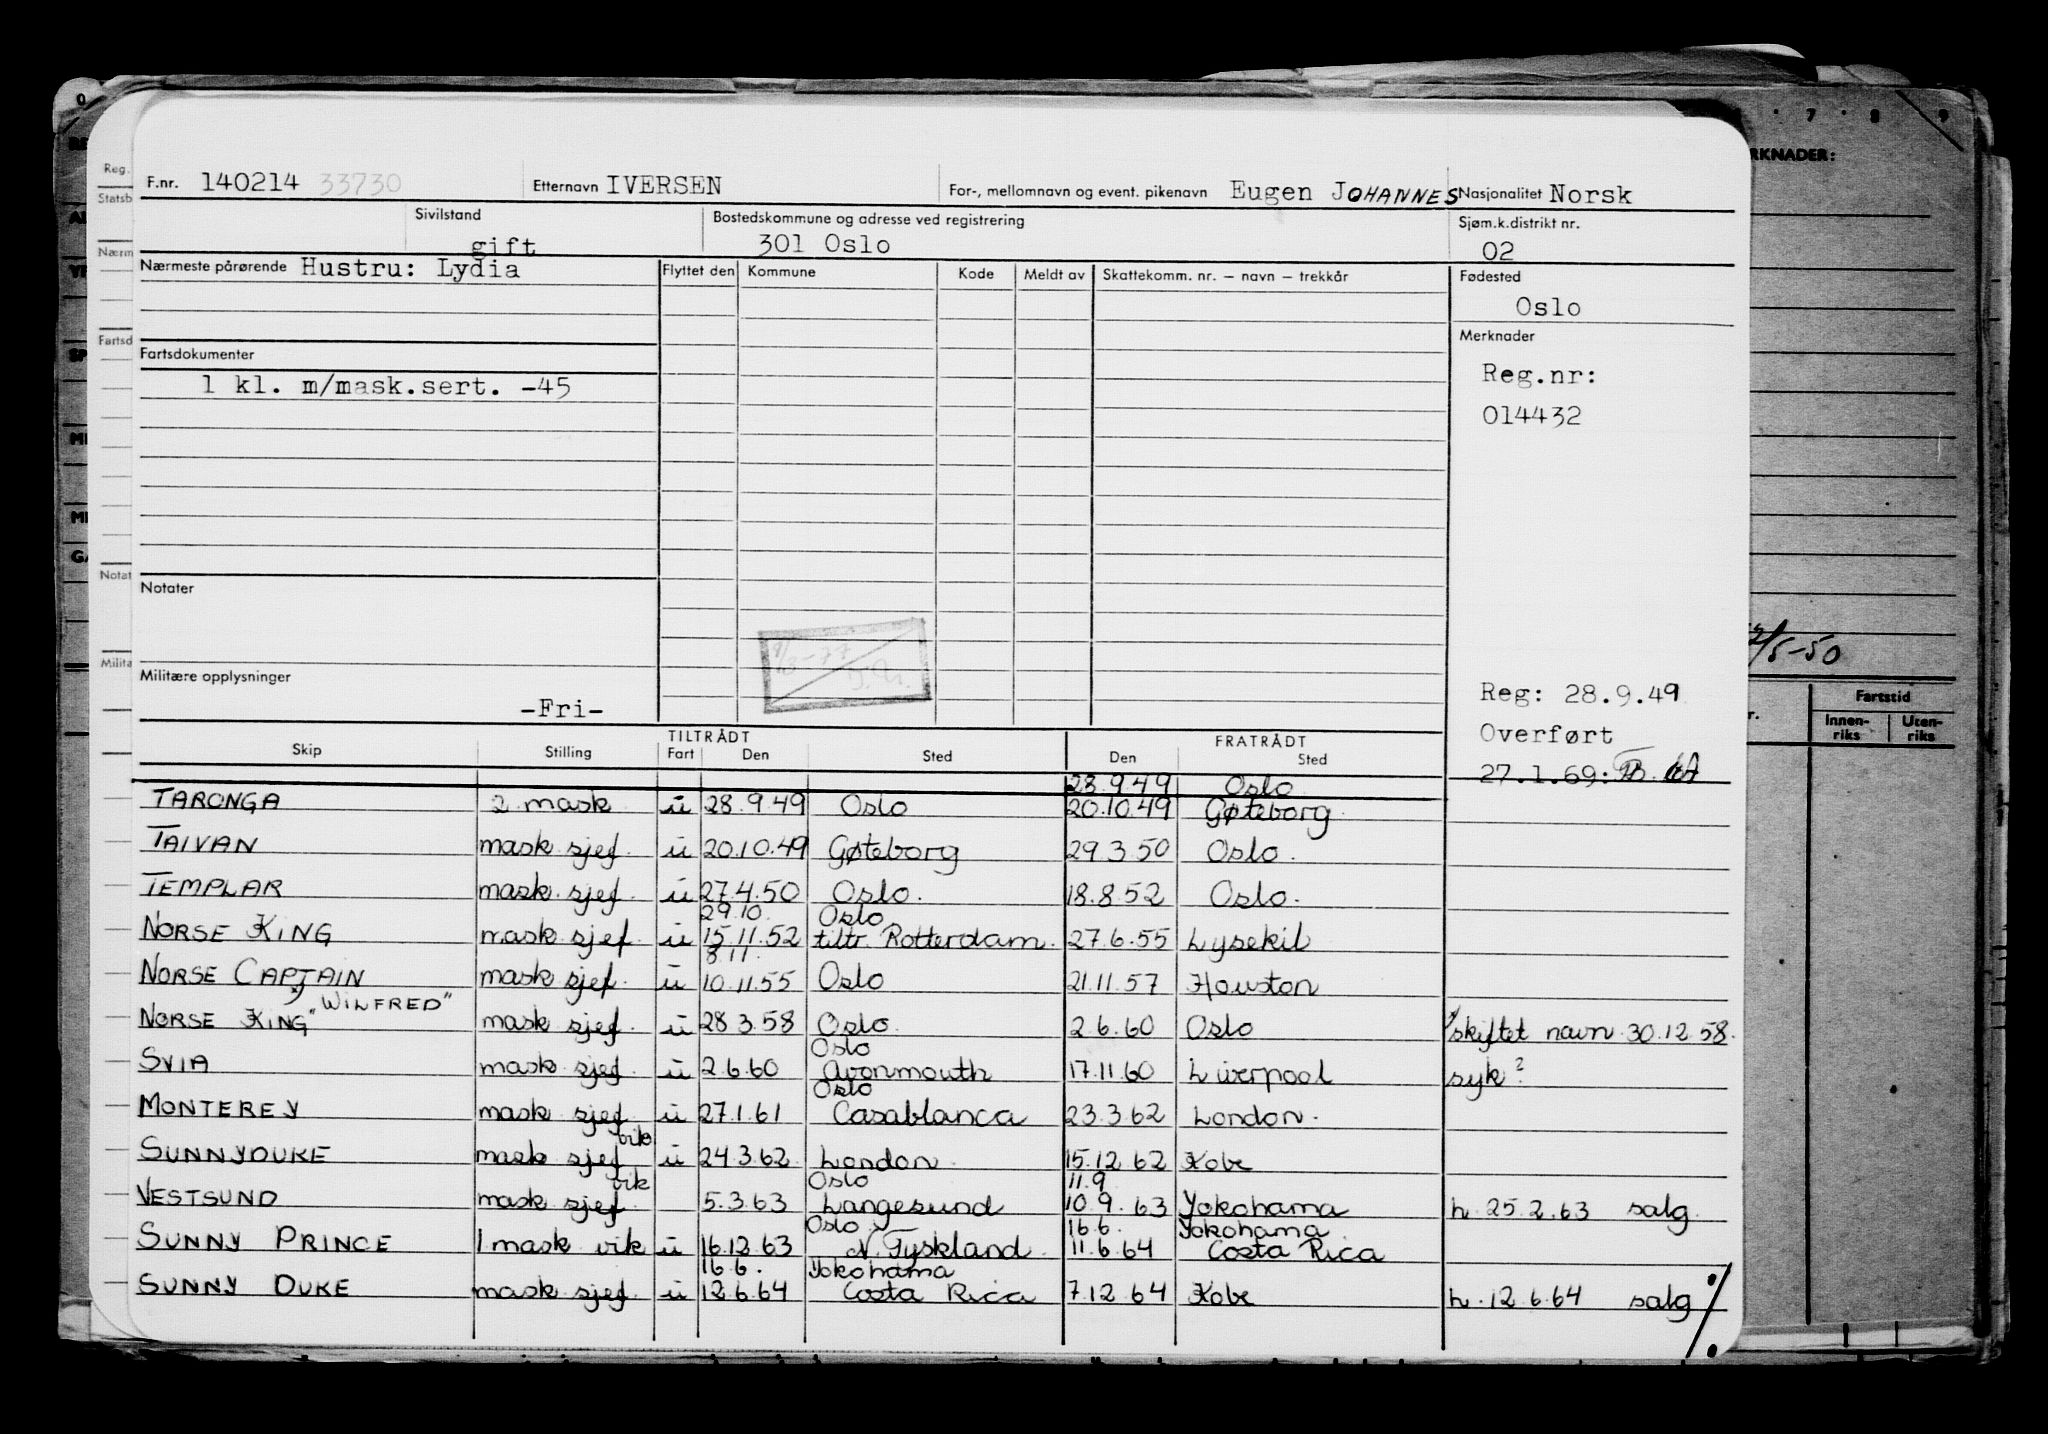 F.nr. 140214 33730 Etternavn IVERSEN For-, mellomnavn og event. pikenavn Eugen JOHANNES Nasjonalitet Norsk
Sivilstand gift Bostedskommune og adresse ved registrering 301 Oslo Sjøm.k.distrikt nr. 02
Nærmeste pårørende Hustru: Lydia Flyttet den Kommune Kode Meldt av Skattekomm. nr. – navn – trekkår Fødested
Oslo
Fartsdokumenter Merknader
1 kl. m/mask.sert. -45 Reg.nr:
014432
Notater
Militære opplysninger
-Fri-
Reg: 28.9.49
Overført
27.1.69:
TILTRÅDT FRATRÅDT
Skip Stilling Fart Den Sted Den Sted
23.9.49 Oslo
TARONGA 2 mask u 28.9.49 Oslo 20.10.49 Gøteborg
TAIVAN mask sjef. u 20.10.49 Gøteborg 29.3.50 Oslo.
TEMPLAR mask sjef. u 27.4.50 Oslo. 18.8.52 Oslo.
29.10. Oslo
NORSE KING mask sjef. u 15.11.52 tiltr. Rotterdam. 27.6.55 Lysekil
8.11.
NORSE CAPTAIN mask sjef. u 10.11.55 Oslo 21.11.57 Houston
"WILFRED"
NORSE KING mask sjef. u 28.3.58 Oslo. 2.6.60 Oslo skiftet navn 30.12.58.
Oslo
SVIA mask sjef. u 2.6.60 Avonmouth 17.11.60 Liverpool syk?
Oslo
MONTEREY mask sjef u 27.1.61 Casablanca 23.3.62 London.
vik
SUNNYDUKE mask sjef u 24.3.62 London. 15.12.62 Kobe
vik Oslo 11.9
VESTSUND mask sjef 5.3.63 Langesund 10.9.63 Yokohama h. 25.2.63 salg.
Oslo 16.6. Yokohama
SUNNY PRINCE 1 mask vik u 16.12.63 N. Tyskland. 11.6.64 Costa Rica
16.6. Yokohama
SUNNY DUKE mask sjef. u 12.6.64 Costa Rica 7.12.64 Kobe h. 12.6.64 salg
Reg.
Statsb
Nærm
Fartsd
Notat
Milita
RKNADER:
7 8 9
/5-50
Fartstid
Innenriks Utenriks